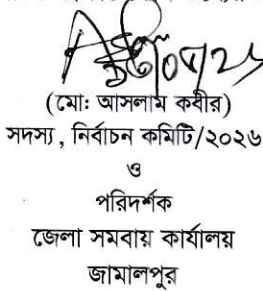 (মো: আসলাম কবীর)
সদস্য , নির্বাচন কমিটি/২০২৬
ও
পরিদর্শক
জেলা সমবায় কার্যালয়
জামালপুর